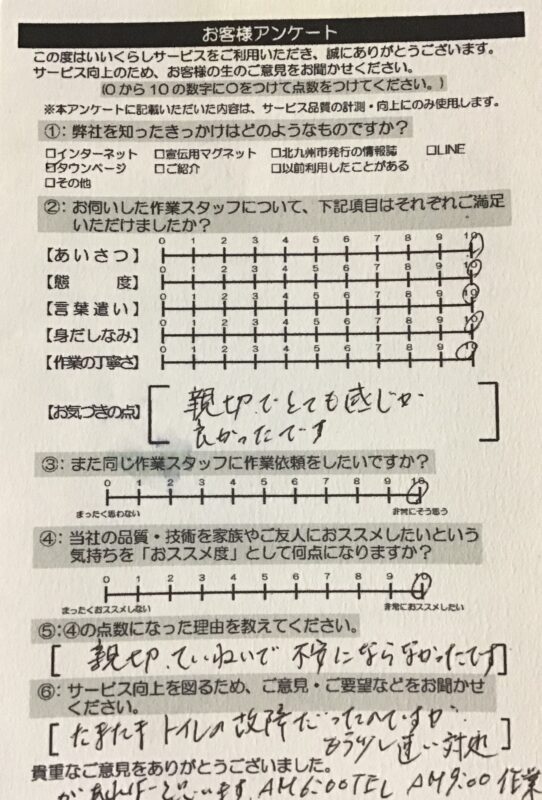 お客様アンケート
この度はいいくらしサービスをご利用いただき、誠にありがとうございます。
サービス向上のため、お客様の生のご意見をお聞かせください。
(0から10の数字に○をつけて点数をつけてください。)
※本アンケートに記載いただいた内容は、サービス品質の計測・向上にのみ使用します。
①：弊社を知ったきっかけはどのようなものですか？
□インターネット □宣伝用マグネット □北九州市発行の情報誌 □LINE
☑タウンページ □ご紹介 □以前利用したことがある
□その他
②：お伺いした作業スタッフについて、下記項目はそれぞれご満足
いただけましたか？
0 1 2 3 4 5 6 7 8 9 10
【あいさつ】
0 1 2 3 4 5 6 7 8 9 10
【態　度】
0 1 2 3 4 5 6 7 8 9 10
【言葉遣い】
0 1 2 3 4 5 6 7 8 9 10
【身だしなみ】
0 1 2 3 4 5 6 7 8 9 10
【作業の丁寧さ】
【お気づきの点】
親切でとても感じが
良かったです
③：また同じ作業スタッフに作業依頼をしたいですか？
0 1 2 3 4 5 6 7 8 9 10
まったく思わない 非常にそう思う
④：当社の品質・技術を家族やご友人におススメしたいという
気持ちを「おススメ度」として何点になりますか？
0 1 2 3 4 5 6 7 8 9 10
まったくおススメしない 非常におススメしたい
⑤：④の点数になった理由を教えてください。
[親切、ていねいで 不安にならなかったです]
⑥：サービス向上を図るため、ご意見・ご要望などをお聞かせ
ください。
[たまたま トイレの故障だったのですが、
もう少し速い対処]
貴重なご意見をありがとうございました。
があればと思います。AM6:00TEL AM9:00作業